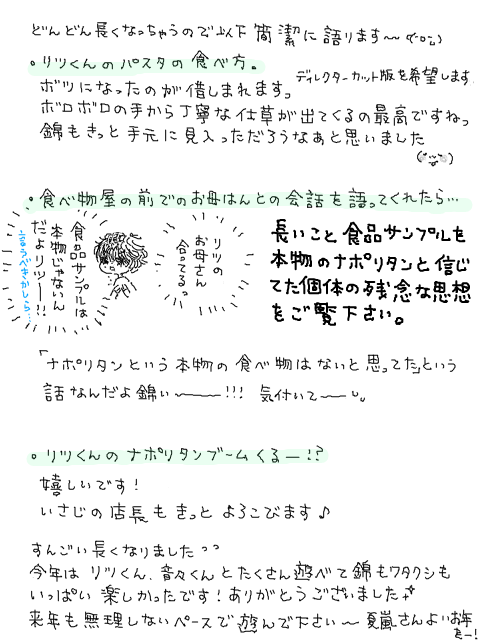 どんどん長くなっちゃうので以下簡潔に語ります〜
・リツくんのパスタの食べ方。
ボツになったのが惜しまれます。
ディレクターカット版を希望します
ボロボロの手から丁寧な仕草が出てくるの最高ですねっ
錦もきっと手元に見入っただろうなあと思いました
・食べ物屋の前でのお母はんとの会話を語ってくれたら…
リツの
お母さん
合ってるっ
食品サンプルは
本物じゃないん
だよリツー!!
言うべきかしら…
長いこと食品サンプルを
本物のナポリタンと信じ
てた個体の残念な思想
をご覧下さい。
「ナポリタンという本物の食べ物はないと思ってた」という
話なんだよ錦ぃ〜!!! 気付いて〜
・リツくんのナポリタンブームくるー!?
嬉しいです!
いさじの店長もきっとよろこびます♪
すんごい長くなりました
今年はリツくん、音々くんとたくさん遊べて錦もワタクシも
いっぱい楽しかったです!ありがとうございました
来年も無理しないペースで遊んで下さい〜夏嵐さんよいお年
をー!